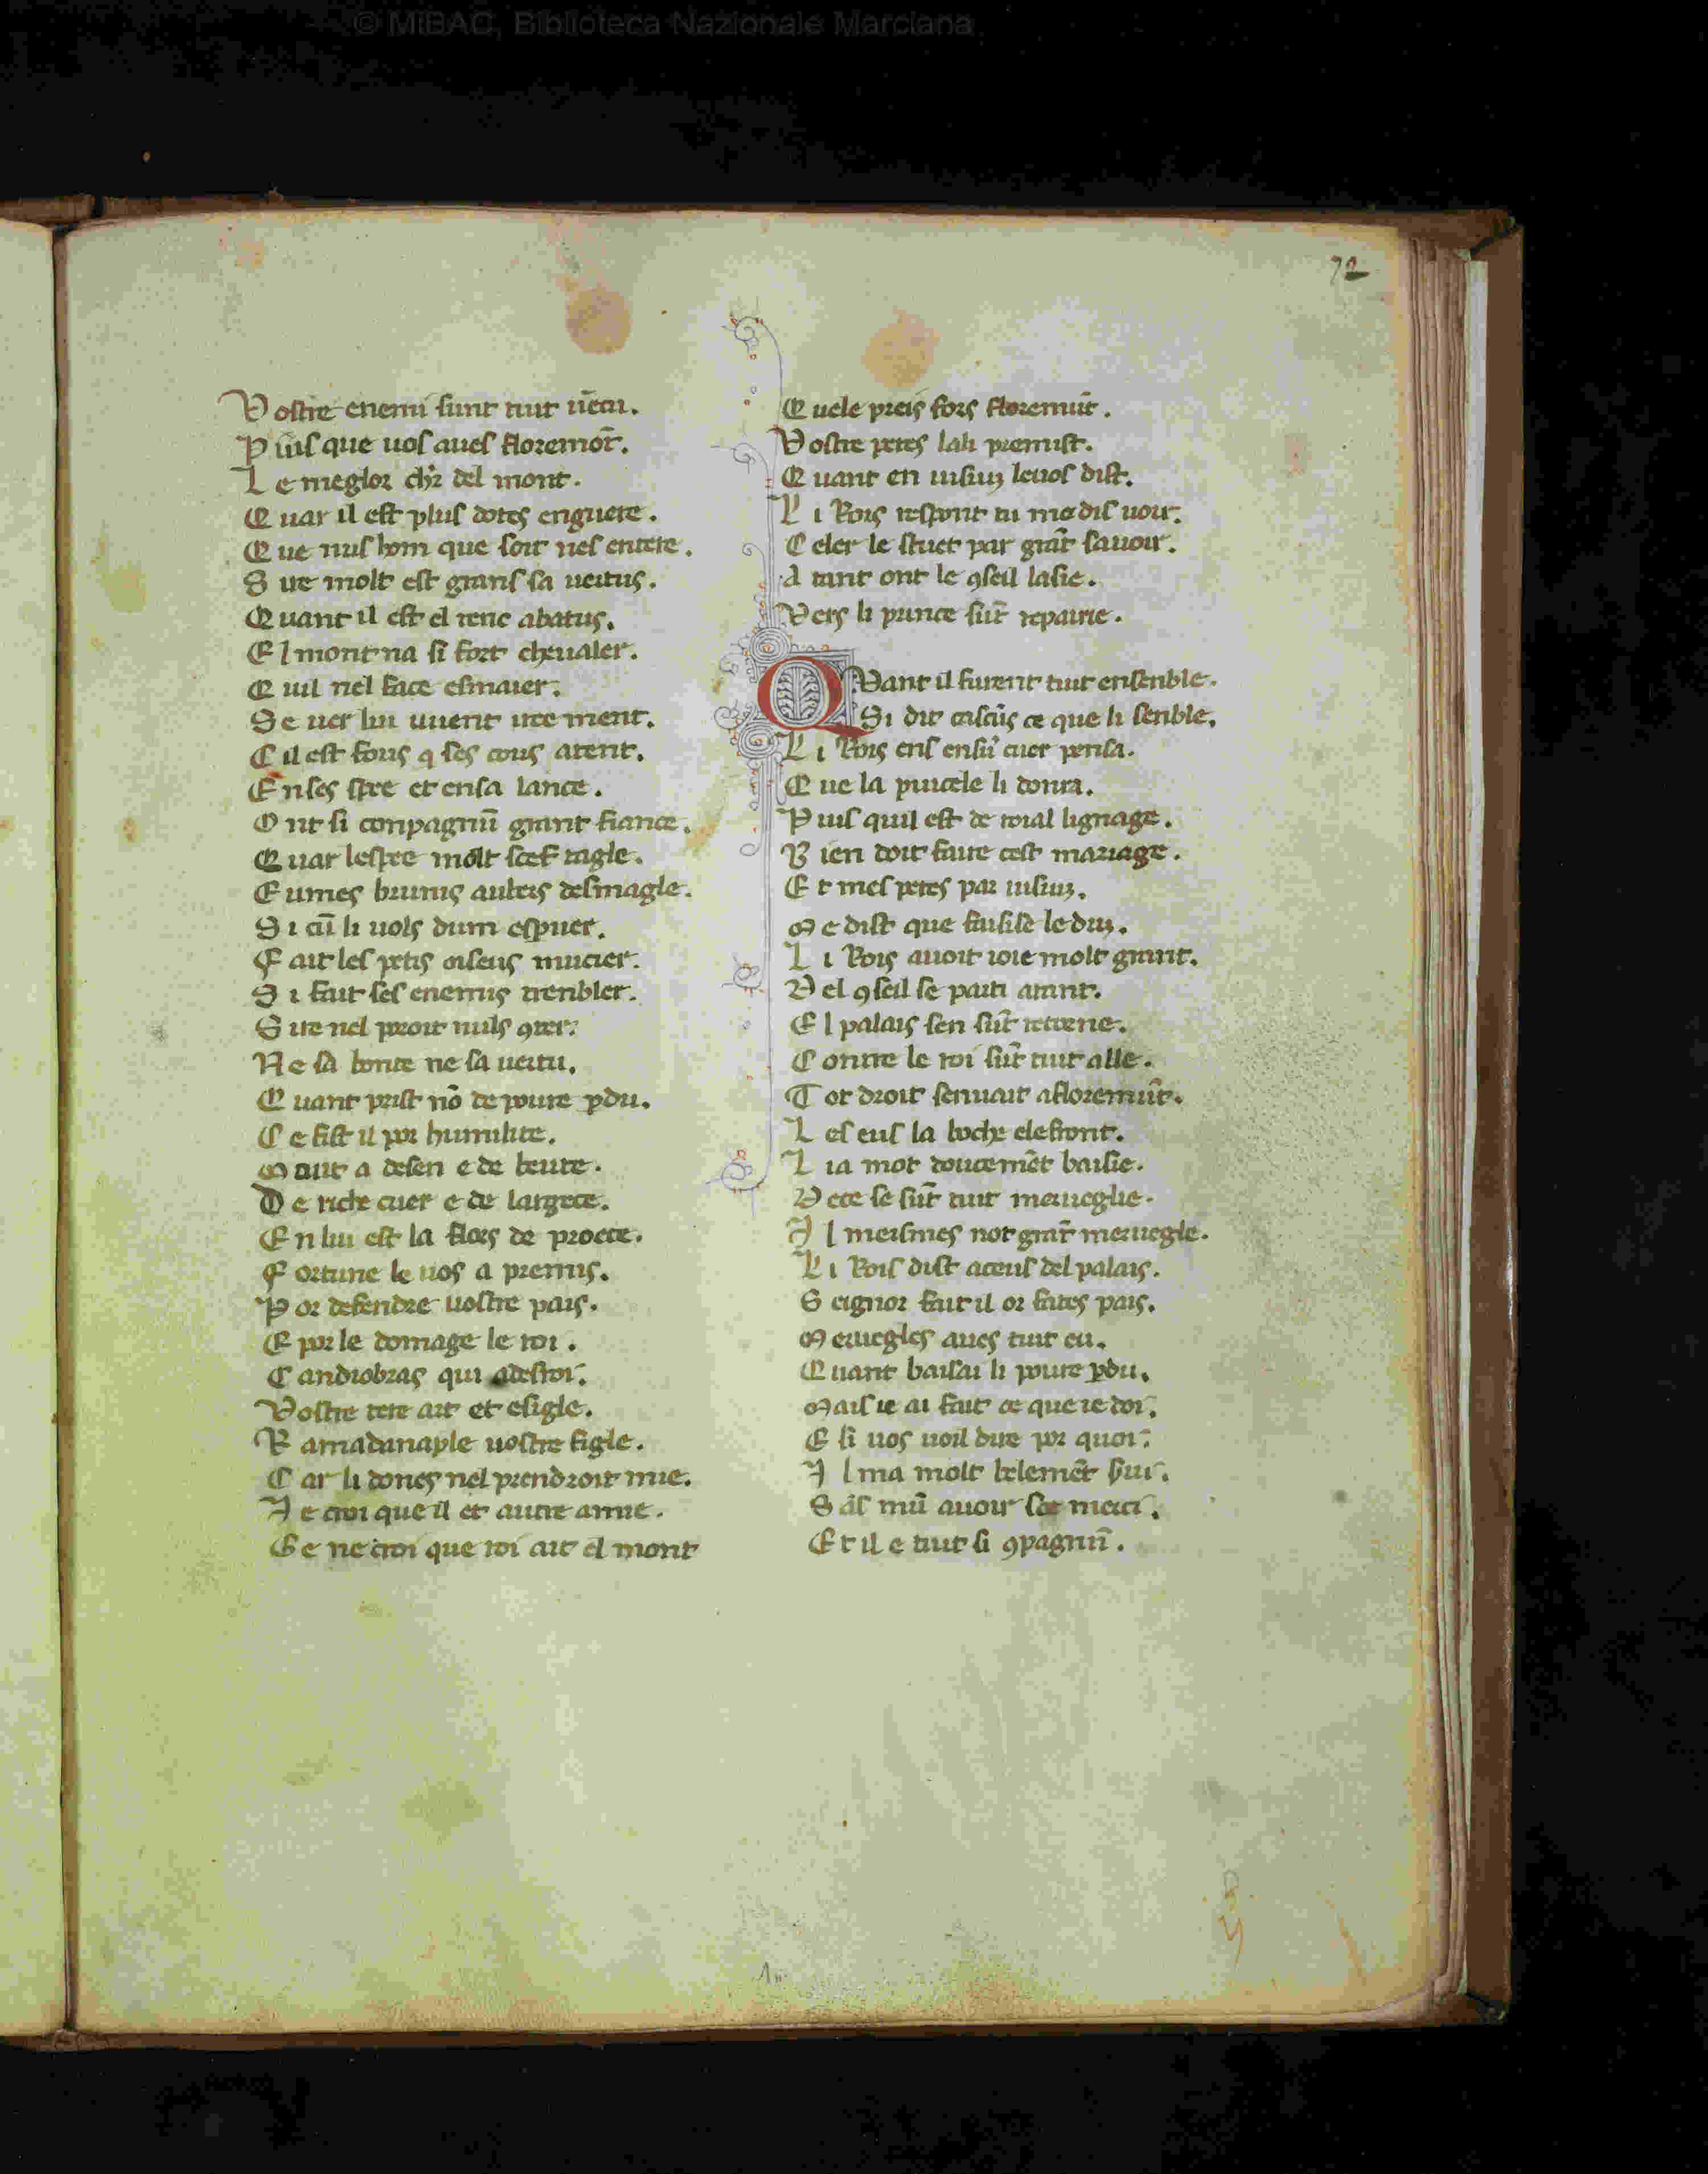 © MiBAC, Biblioteca Nazionale Marciana
72
Vostre enemi sunt tuit uẽcu.
Puis que uos aues floremõt.
Le meglor chr̃ del mont.
Quar il est plus dotes enguere.
Que nus hom que soit nes entere.
Sue molt est grans sa uertus.
Quant il est el renc abatus.
El mont na si fort cheualer.
Quil nel face esmaier.
Se uer lui uuent iree ment.
Cil est fous q ses cous atent.
En ses spee et en sa lance.
Ont si conpagnũ grant fiance.
Quar lespee molt soef tagle.
Eumes brunis aubers desmagle.
Si cũ li uols dum espuer.
Fait les petis oiseus mucier.
Si fait ses enemis trenbler.
Sire nel poroit nuls 9ter.
Ne sa bonte ne sa uertu.
Quant prist nõ de poure pdu.
Ce fist il por humilite.
Mout a desen e de beute.
De riche cuer e de largece.
En lui est la flors de proece.
Fortune le uos a premis.
Por defendre uostre pais.
E por le domage le roi.
Candiobras qui adestroi.
Vostre tere art et esigle.
Ramadanaple uostre figle.
Car li dones nel prendroit mie.
Ie croi que il et autre amie.
Ge ne croi que roi ait el mont
Quele preis fors floremũt.
Vostre peres lali premist.
Quant en uisiun leuos dist.
Li Rois respont tu me dis uoir.
Celer le stuet par grãt sauoir.
A tant ont le 9seil lasie.
Vers li prince sũt repairie.
QVant il furent tuit ensenble.
Si dit cascũs ce que li senble.
Li Rois ens ensũ cuer pensa.
Que la pucele li donra.
Puis quil est de roial lignage.
Bien doit faire cest mariage.
Et mes peres par uisiun.
Me dist que faisise le dun.
Li Rois auoit ioie molt grant.
Del 9seil se parti atant.
El palais sen sũt retorne.
Contre le roi sũt tuit alle.
Tot droit senuait afloremũt.
Les eus la boche elefront.
Lia mot doucemẽt baisie.
Dece se sũt tuit merueglie.
Il meismes not grãt meruegle.
Li Rois dist aceus del palais.
Seignor fait il or faites pais.
Meruegles aues tuit eu.
Quant baisai li poure pdu.
Mais ie ai fait ce que ie doi.
E si uos uoil dire por quoi.
Il ma molt belemẽt serui.
Et il e tuit si 9pagnũ.